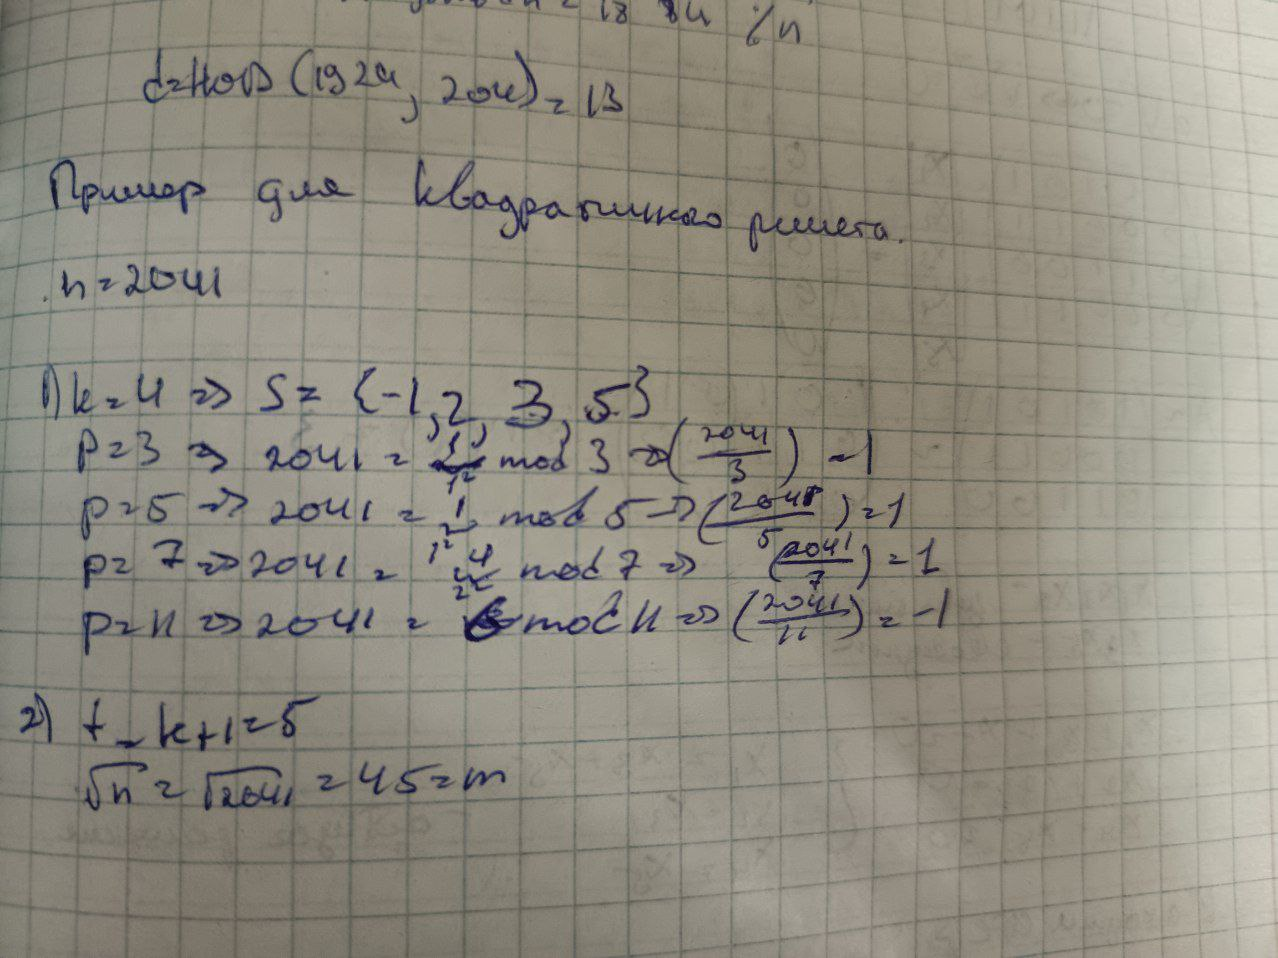 = 18 84 % n
d=НОД (1924, 2041) = 13
Пример для квадратичного решета.
n = 2041
1) k=4 => S= {-1, 2, 3, 5}
p=3 => 2041 = 1 1² mod 3 => (2041/3) = 1
p=5 => 2041 = 1 1² mod 5 => (2041/5) = 1
p=7 => 2041 = 4 2² mod 7 => (2041/7) = 1
p=11 => 2041 = 6 mod 11 => (2041/11) = -1
2) t = k+1 = 5
√n = √2041 = 45 = m